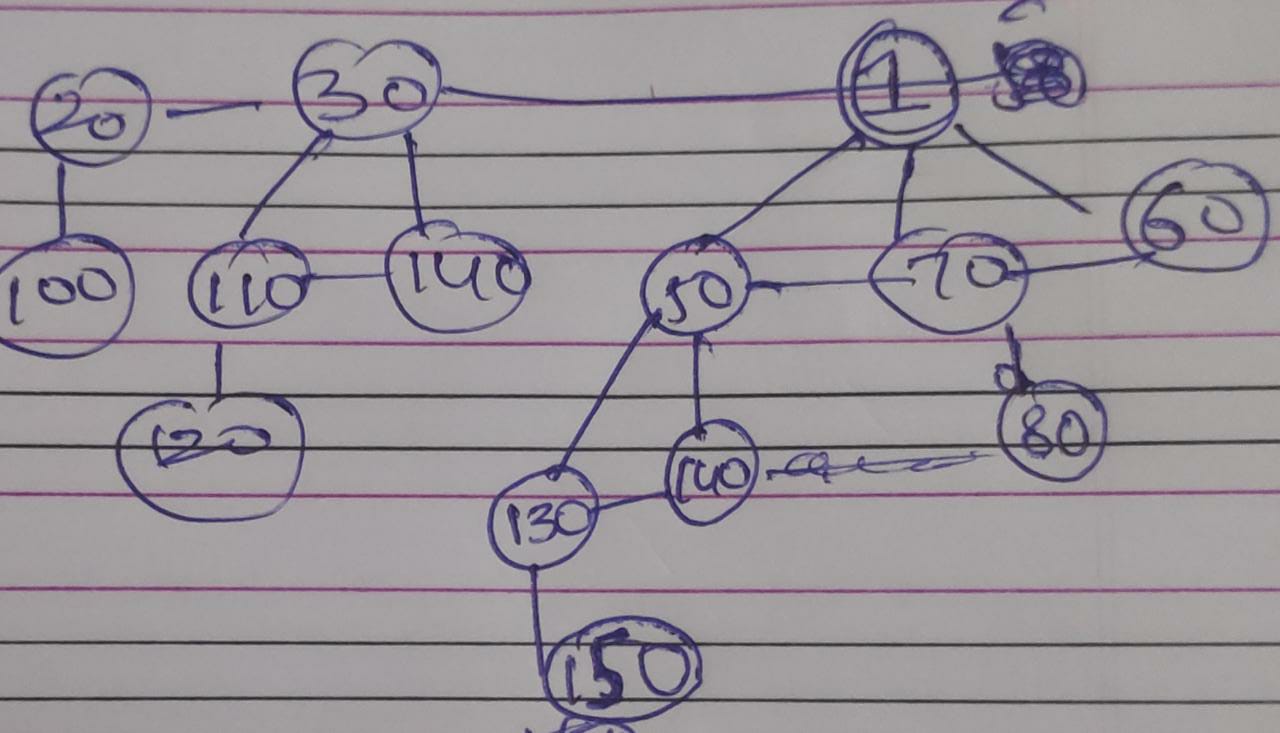 20 30 1 c
60
100 110 140 50 70
d
120 140 80
130
150